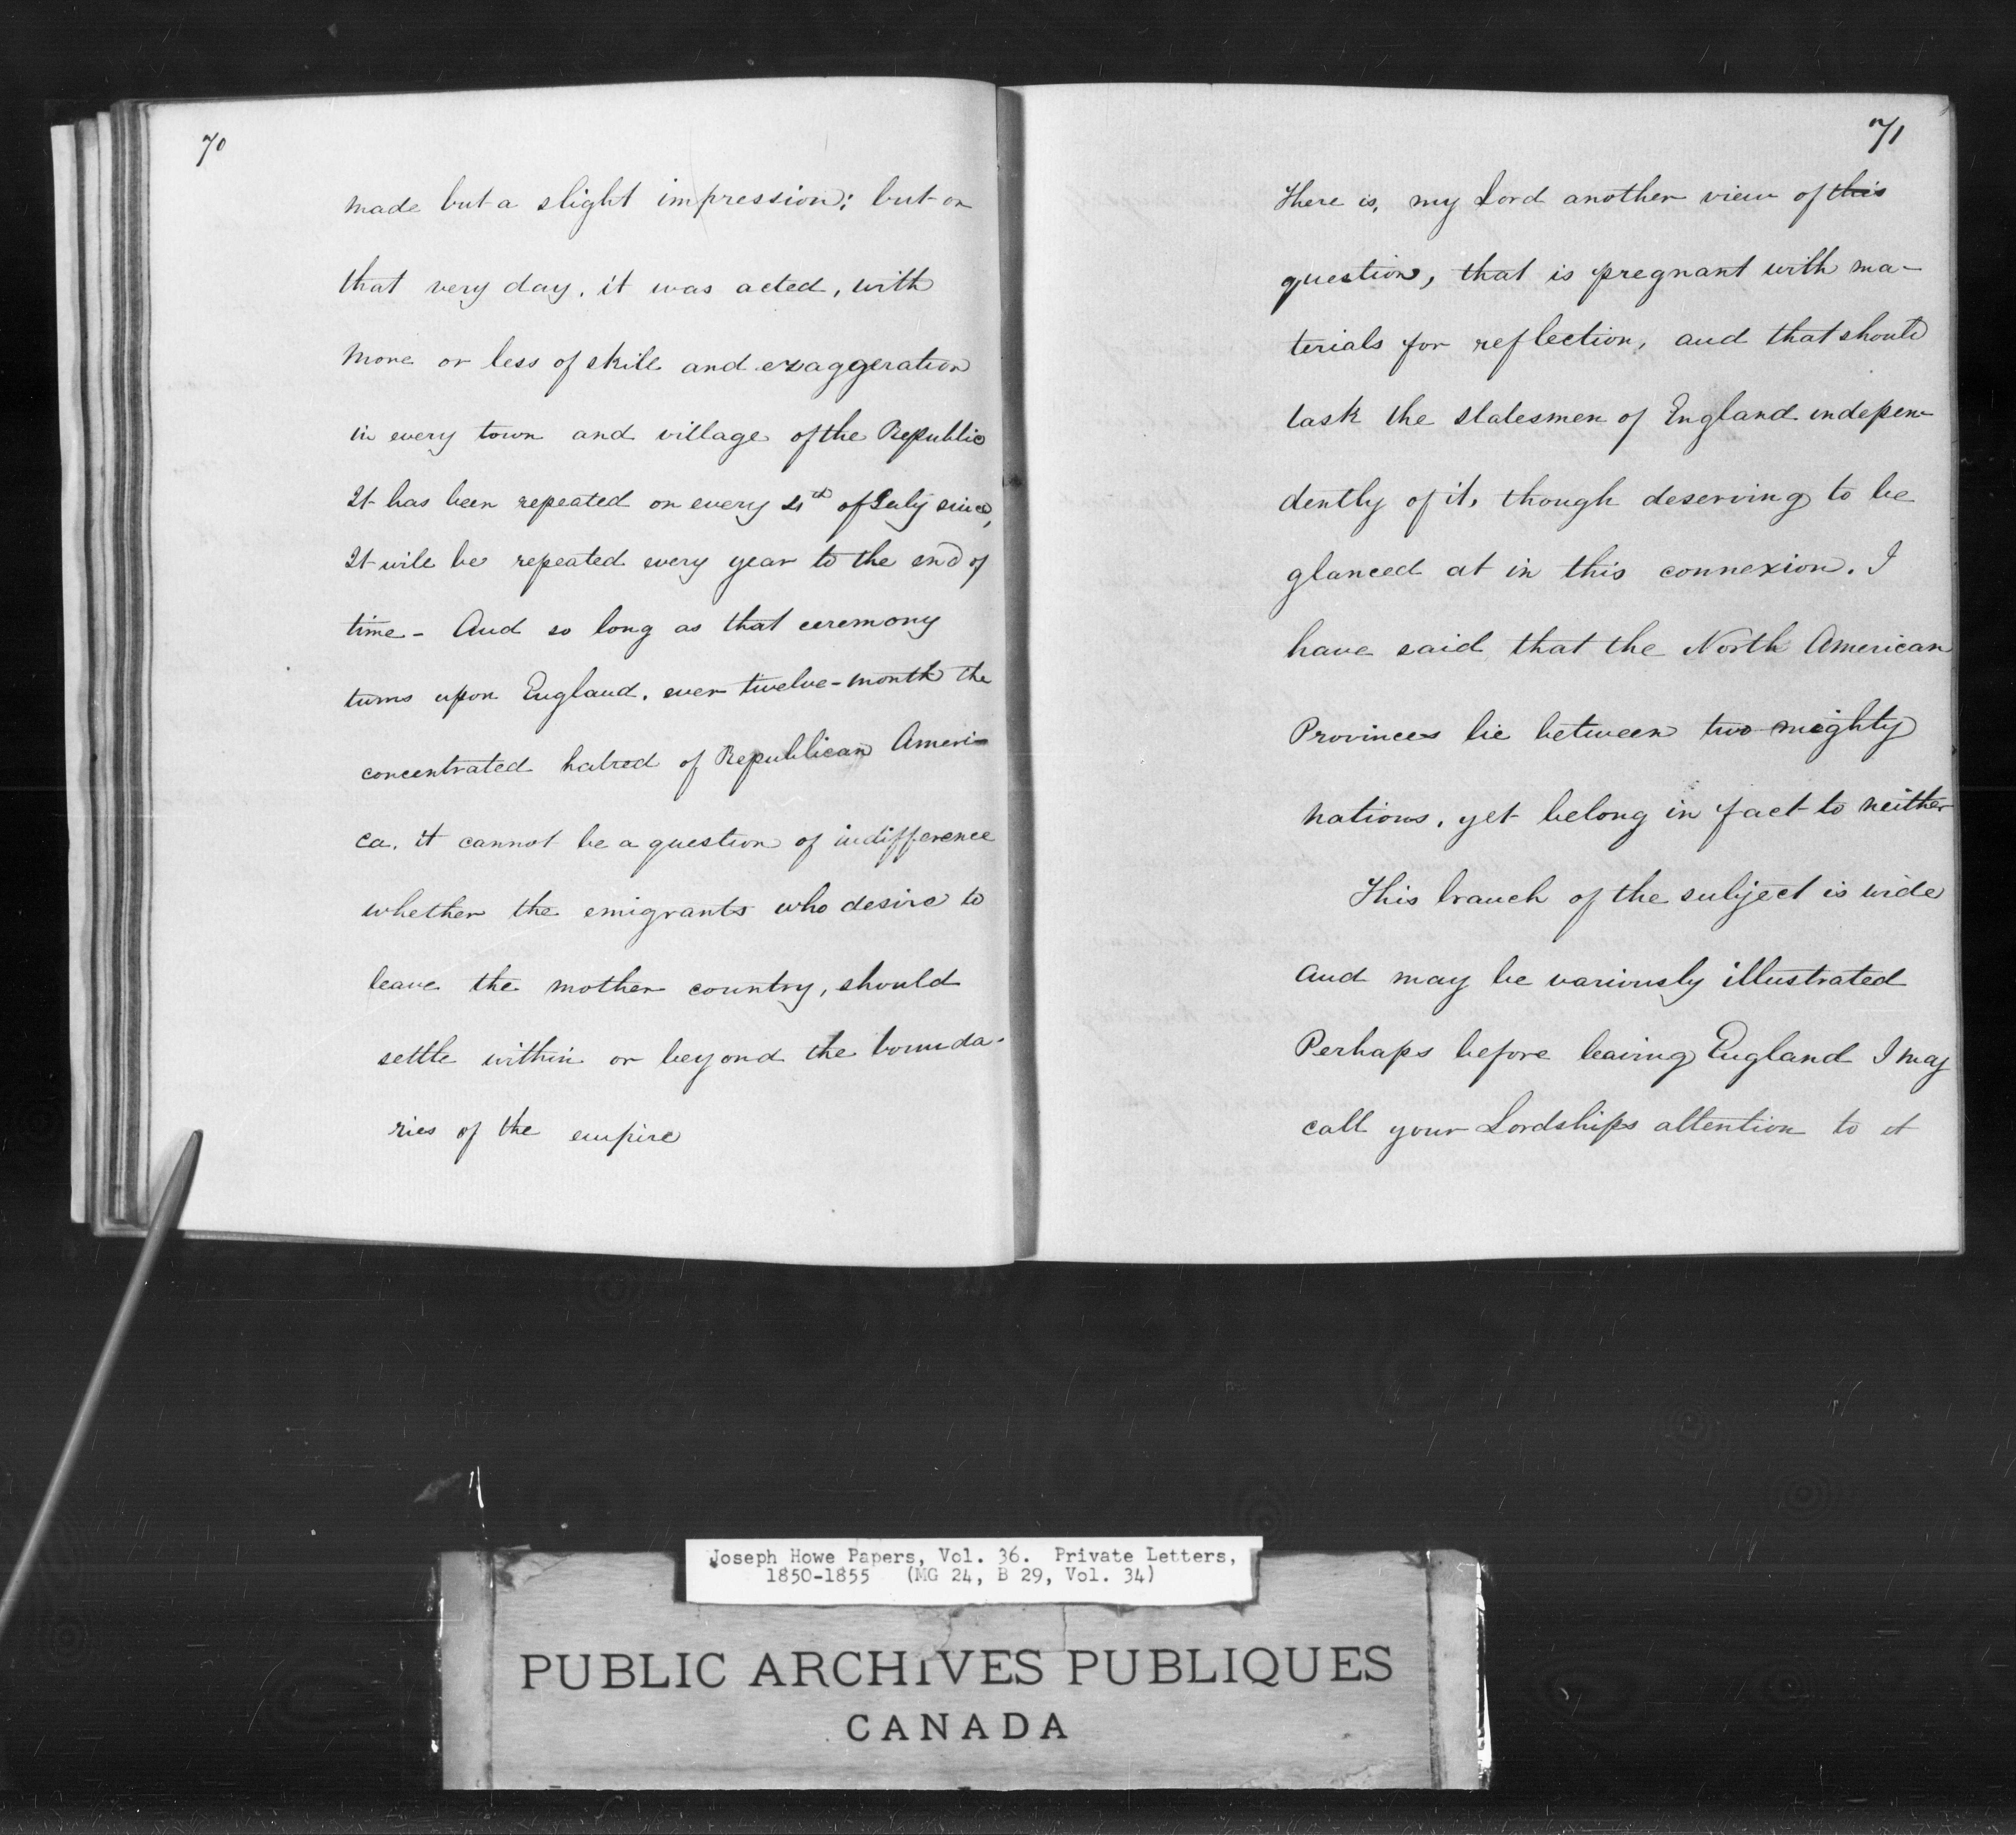 70
made but a slight impression; but on
that very day, it was acted, with
more or less of skill and exaggeration
in every town and village of the Republic
It has been repeated on every 4th of July since,
It will be repeated every year to the end of
time - And so long as that ceremony
turns upon England, ever twelve-month the
concentrated hatred of Republican Ameri-
ca, it cannot be a question of indifference
whether the emigrants who desire to
leave the mother country, should
settle within or beyond the bounda-
ries of the empire
71
There is, my Lord another view of this
question, that is pregnant with ma-
terials for reflection, and that should
task the statesmen of England indepen-
dently of it, though deserving to be
glanced at in this connexion. I
have said that the North American
Provinces lie between two mighty
nations, yet belong in fact to neither
This branch of the subject is wide
and may be variously illustrated
Perhaps before leaving England I may
call your Lordships attention to it
Joseph Howe Papers, Vol. 36. Private Letters,
1850-1855 (MG 24, B 29, Vol. 34)
PUBLIC ARCHIVES PUBLIQUES
CANADA